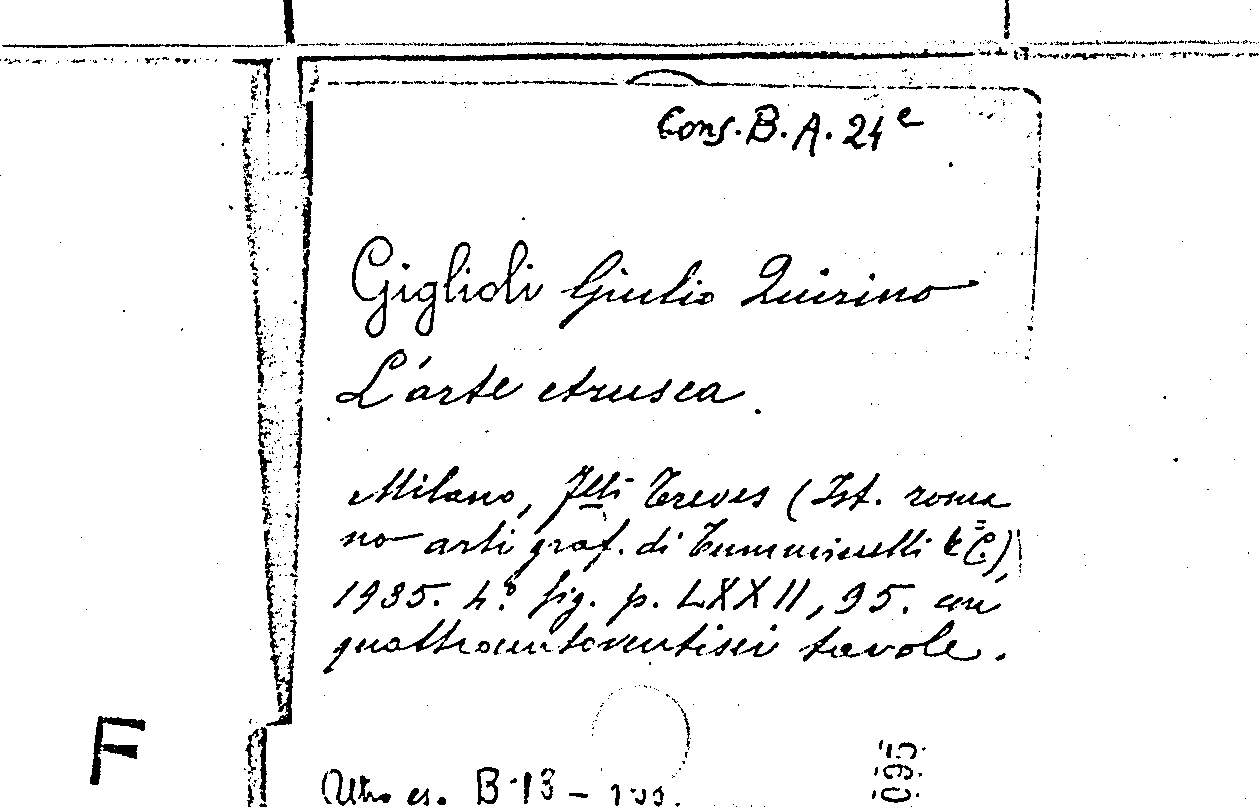 Cons. B. A. 24e
Giglioli Giulio Quirino
L'arte etrusca.
Milano, Flli Treves (Ist. roma
no arti graf. di Tumminelli e C.),
1935. 4.° fig. p. LXXII, 95. con
quattrocentoventisei tavole.
F
Altro es. B-13 -
095